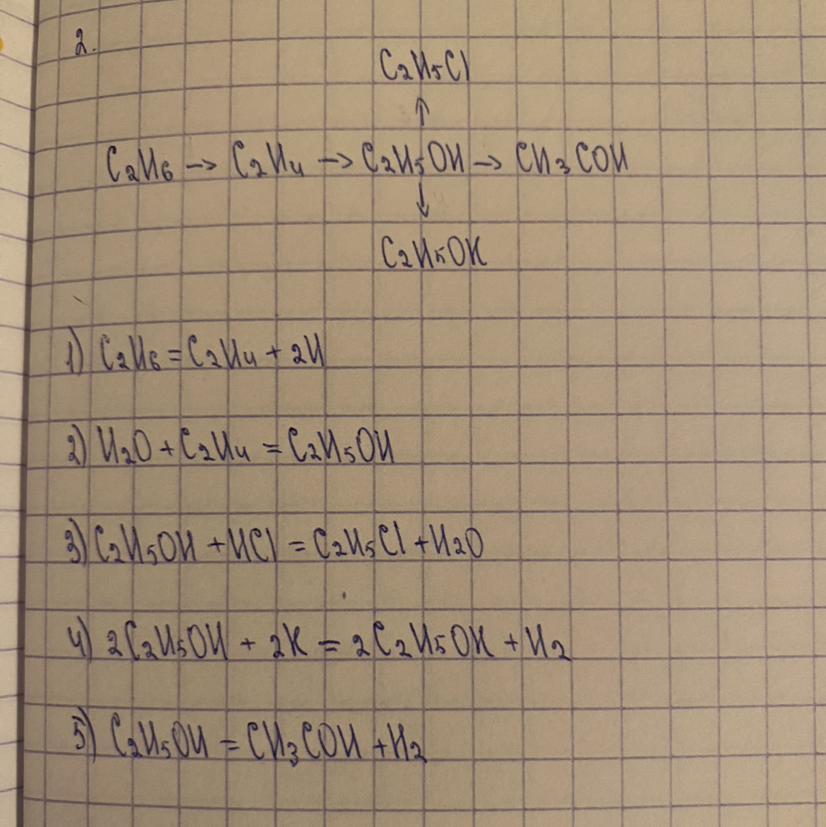 2.
C₂H₅Cl
↑
C₂H₆ → C₂H₄ → C₂H₅OH → CH₃COH
↓
C₂H₅OK
1) C₂H₆ = C₂H₄ + 2H
2) H₂O + C₂H₄ = C₂H₅OH
3) C₂H₅OH + HCl = C₂H₅Cl + H₂O
4) 2C₂H₅OH + 2K = 2C₂H₅OK + H₂
5) C₂H₅OH = CH₃COH + H₂